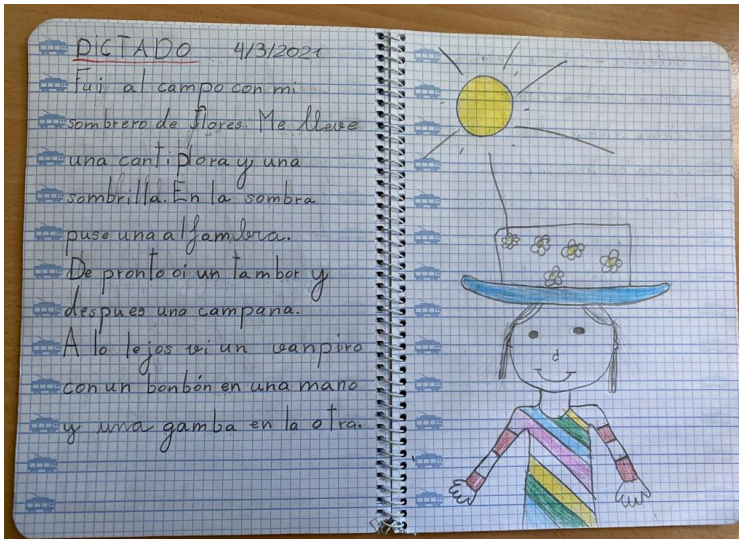 DICTADO 4/3/2021
Fui al campo con mi
sombrero de flores. Me lleve
una cantiplora y una
sombrilla. En la sombra
puse una alfambra.
De pronto oi un tambor y
despues una campana.
A lo lejos vi un vanpiro
con un bonbón en una mano
y una gamba en la otra.